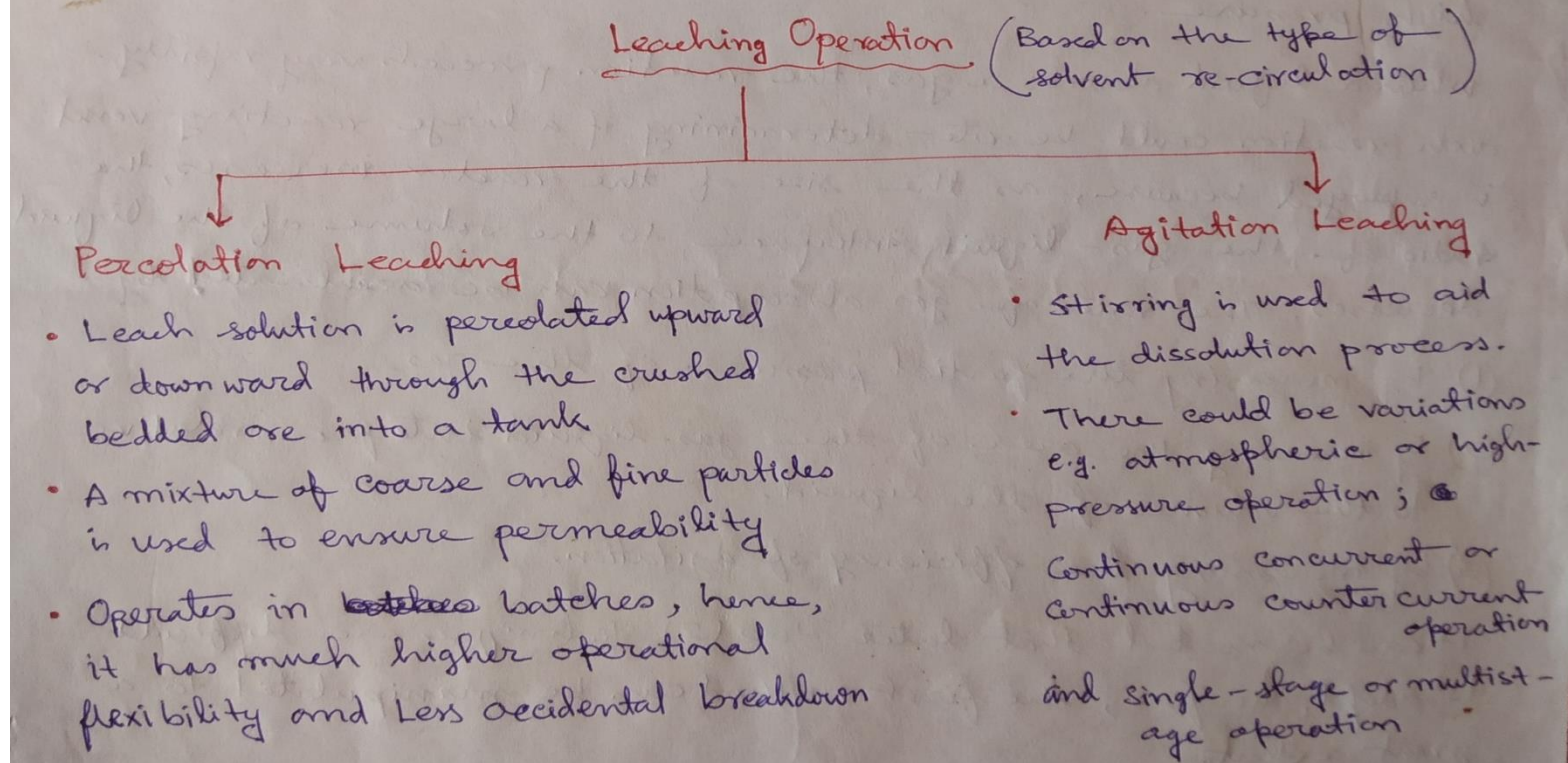 Leaching Operation (Based on the type of
solvent re-circulation)
Percolation Leaching
• Leach solution is percolated upward
or downward through the crushed
bedded ore into a tank
• A mixture of coarse and fine particles
is used to ensure permeability
• Operates in batches, hence,
it has much higher operational
flexibility and Less accidental breakdown
Agitation Leaching
• Stirring is used to aid
the dissolution process.
• There could be variations
e.g. atmospheric or high-
pressure operation ;
Continuous concurrent or
Continuous counter current
operation
and single-stage or multist-
age operation